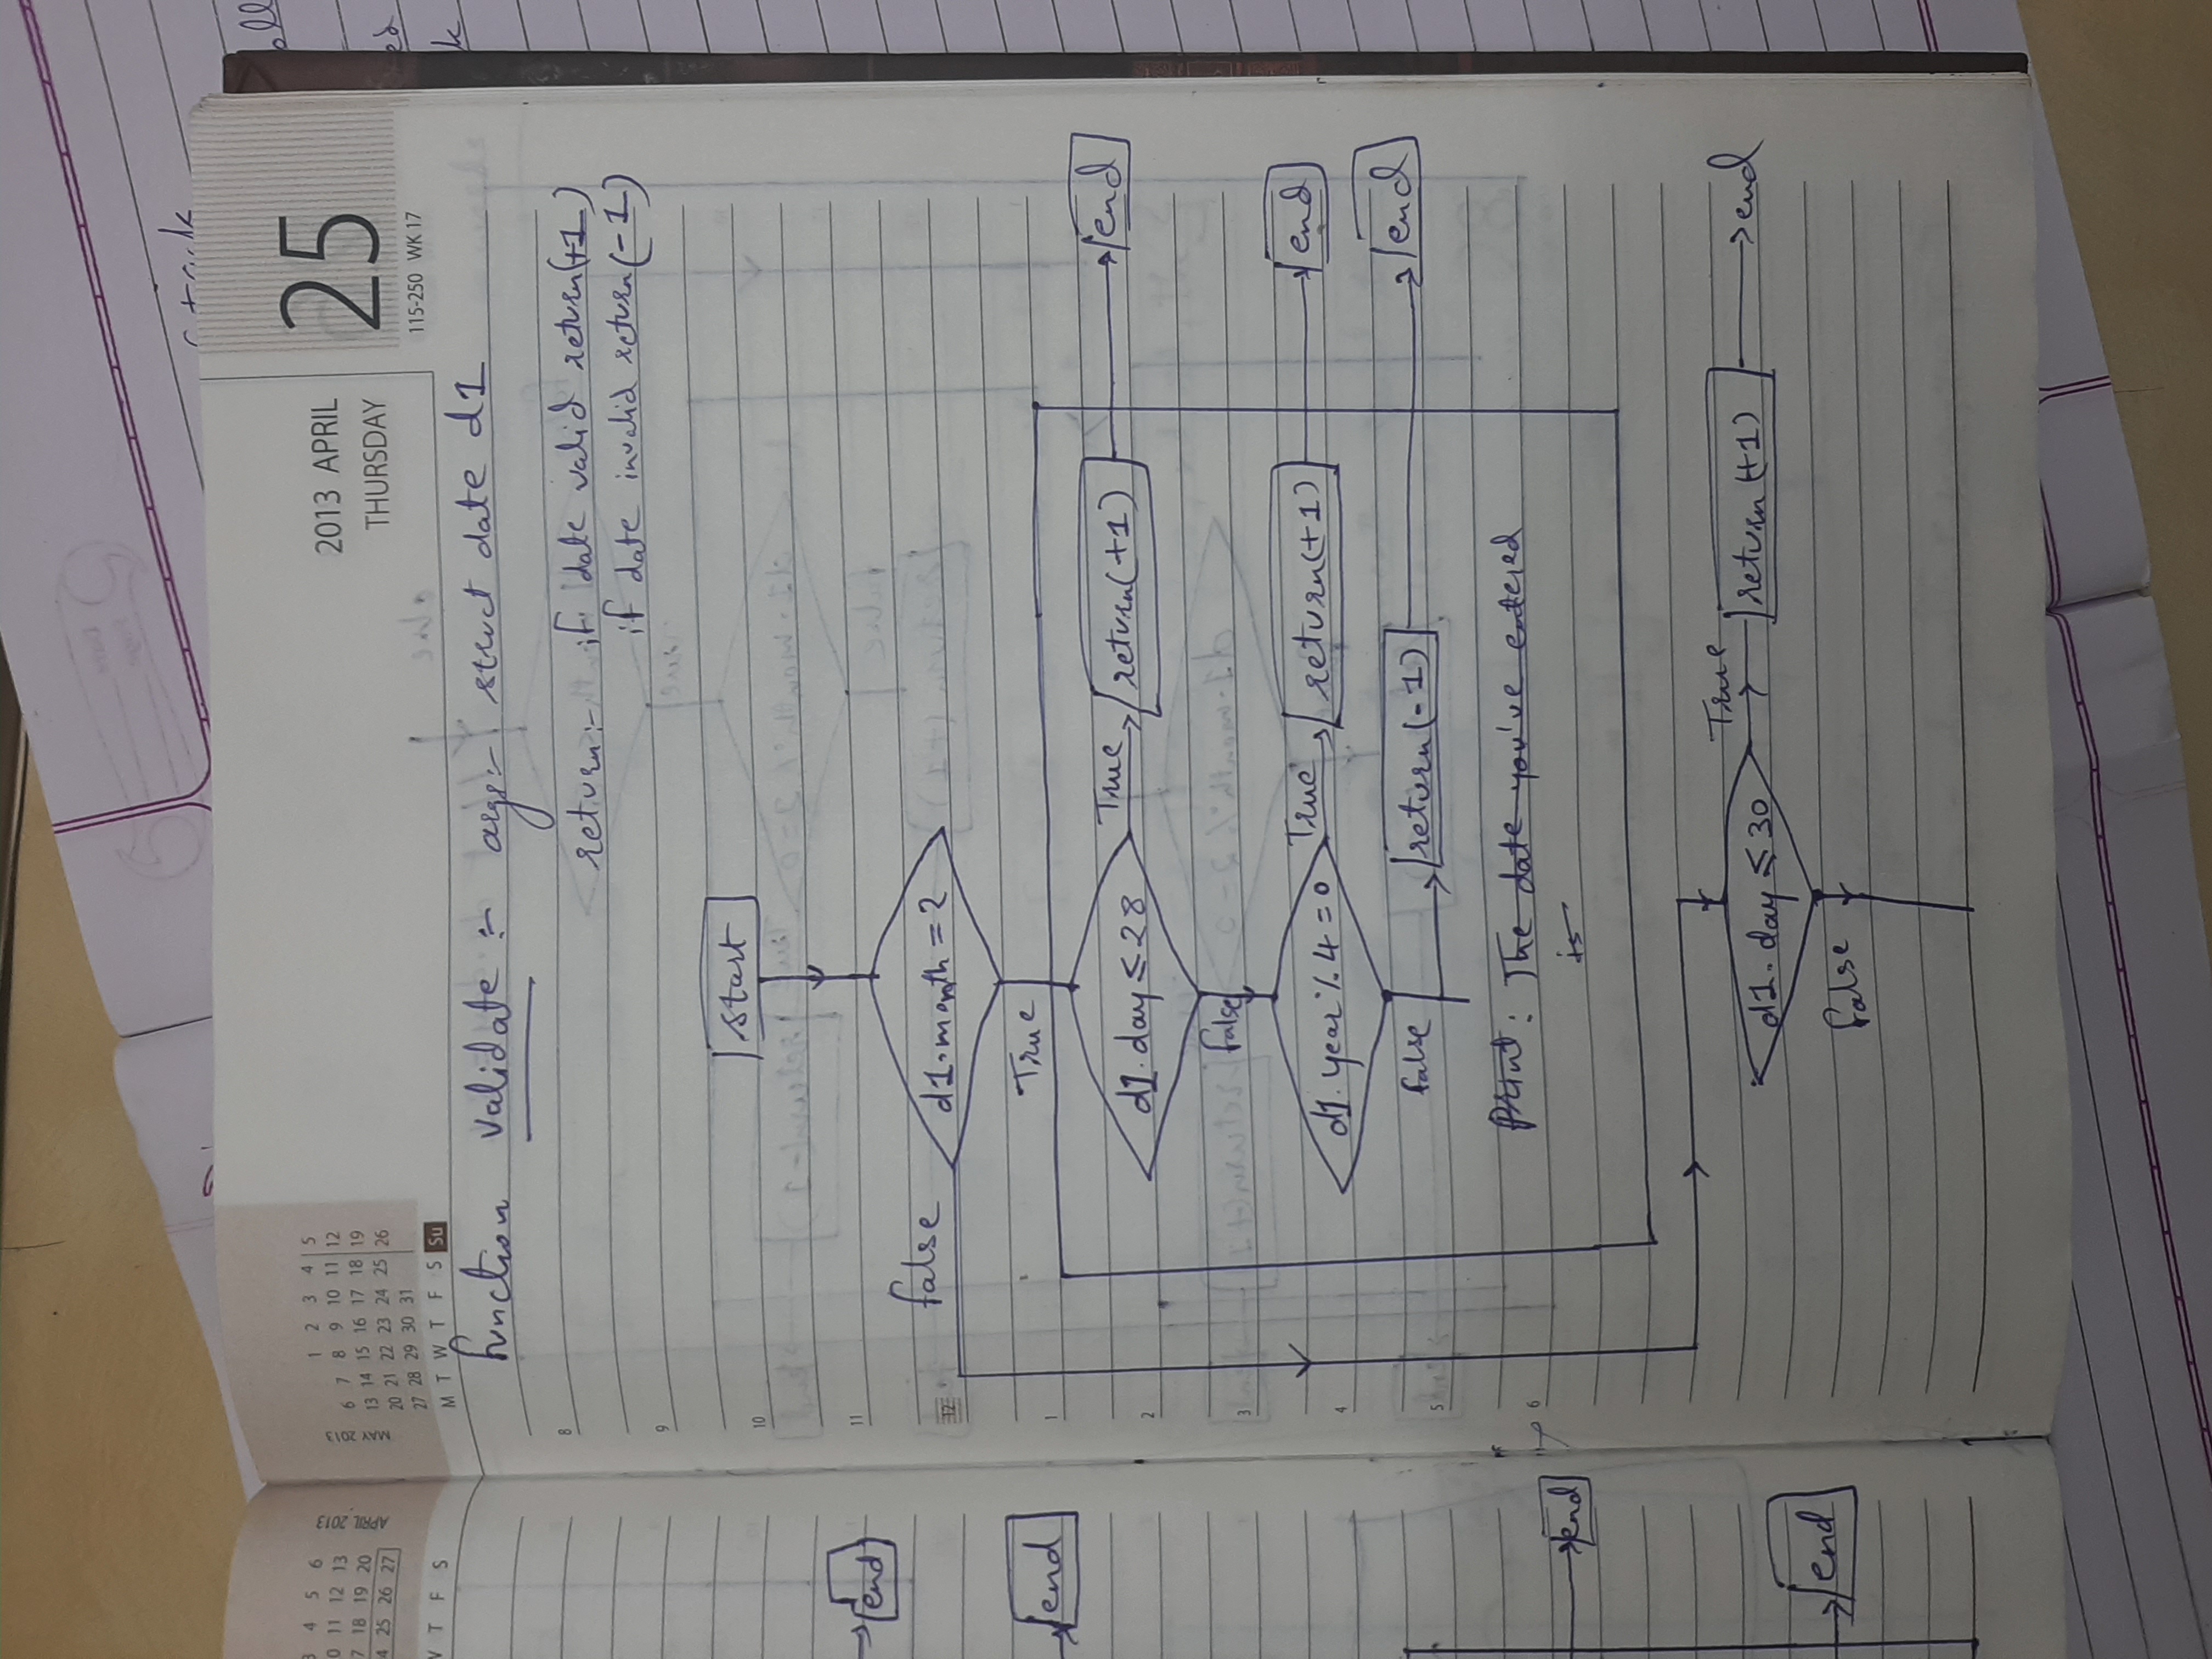 3 4 5 6
0 11 12 13
7 18 19 20
4 25 26 27
APRIL 2013
T F S
end
end
end
end
MAY 2013
1 2 3 4 5
6 7 8 9 10 11 12
13 14 15 16 17 18 19
20 21 22 23 24 25 26
27 28 29 30 31
M T W T F S Su
2013 APRIL
THURSDAY
25
115-250 WK 17
function validate :- args:- struct date d1
return:- if date valid return(+1)
if date invalid return(-1)
8
9
10
11
12
1
2
3
4
5
6
start
false d1.month = 2
True
d1.day ≤ 28 True return(+1) end
false
d1.year % 4 = 0 True return(+1) end
false return(-1) end
Print: The date you've entered
is
d1.day ≤ 30 True return (+1) end
false